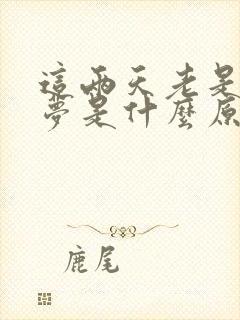 這兩天老是
夢是什麼原
鹿尾